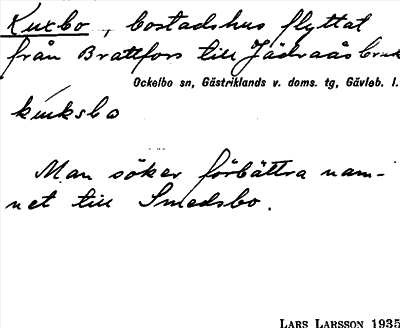 Kuxbo, bostadshus flyttat
från Brattfors till Jädraås bruk
Ockelbo sn, Gästriklands v. doms. tg, Gävleb. l.
kúksbo
Man söker förbättra nam-
net till Smedsbo.
LARS LARSSON 1935